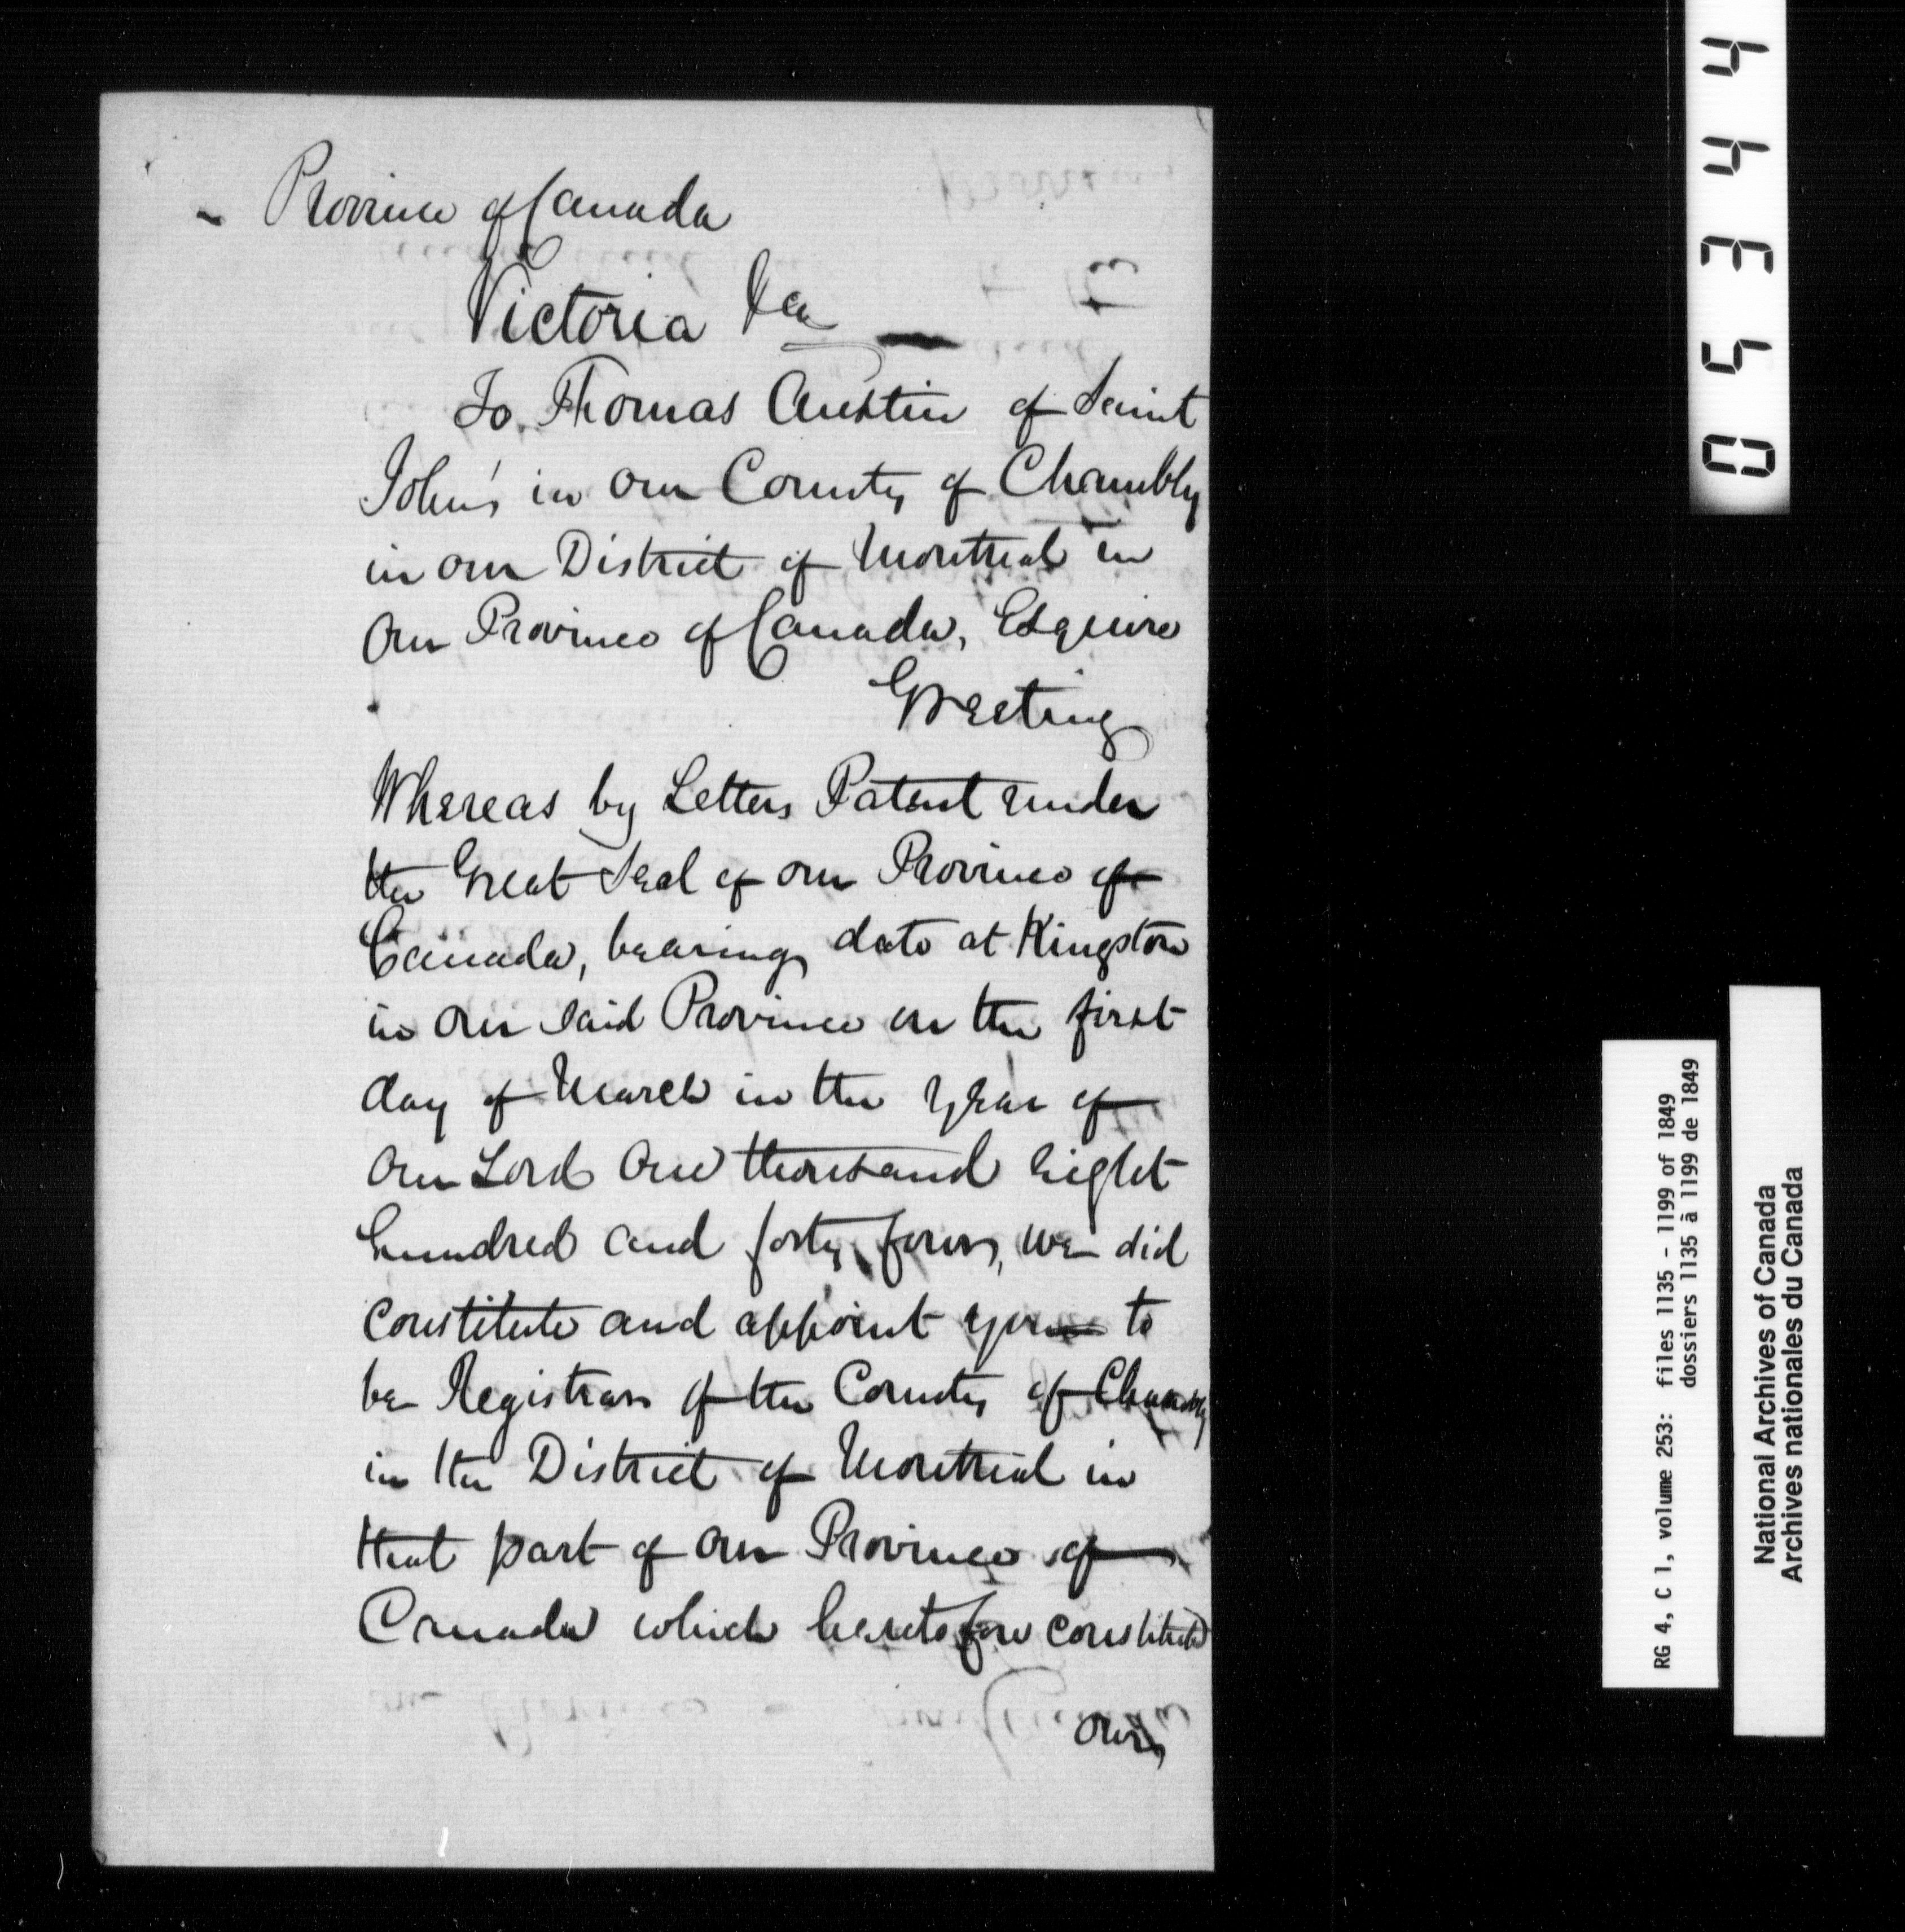 Province of Canada
Victoria &ca
To Thomas Austin of Saint
John's in our County of Chambly
in our District of Montreal in
Our Province of Canada, Esquire
Greeting
Whereas by Letters Patent under
the Great Seal of our Province of
Canada, bearing date at Kingston
in our said Province on the first
day of March in the year of
Our Lord One thousand eight
hundred and forty four, we did
constitute and appoint you to
be Registrar of the County of Chambly
in the District of Montreal in
that part of our Province of
Canada which heretofore constituted
our
05344
RG 4, C 1, volume 253: files 1135 - 1199 of 1849
dossiers 1135 à 1199 de 1849
National Archives of Canada
Archives nationales du Canada